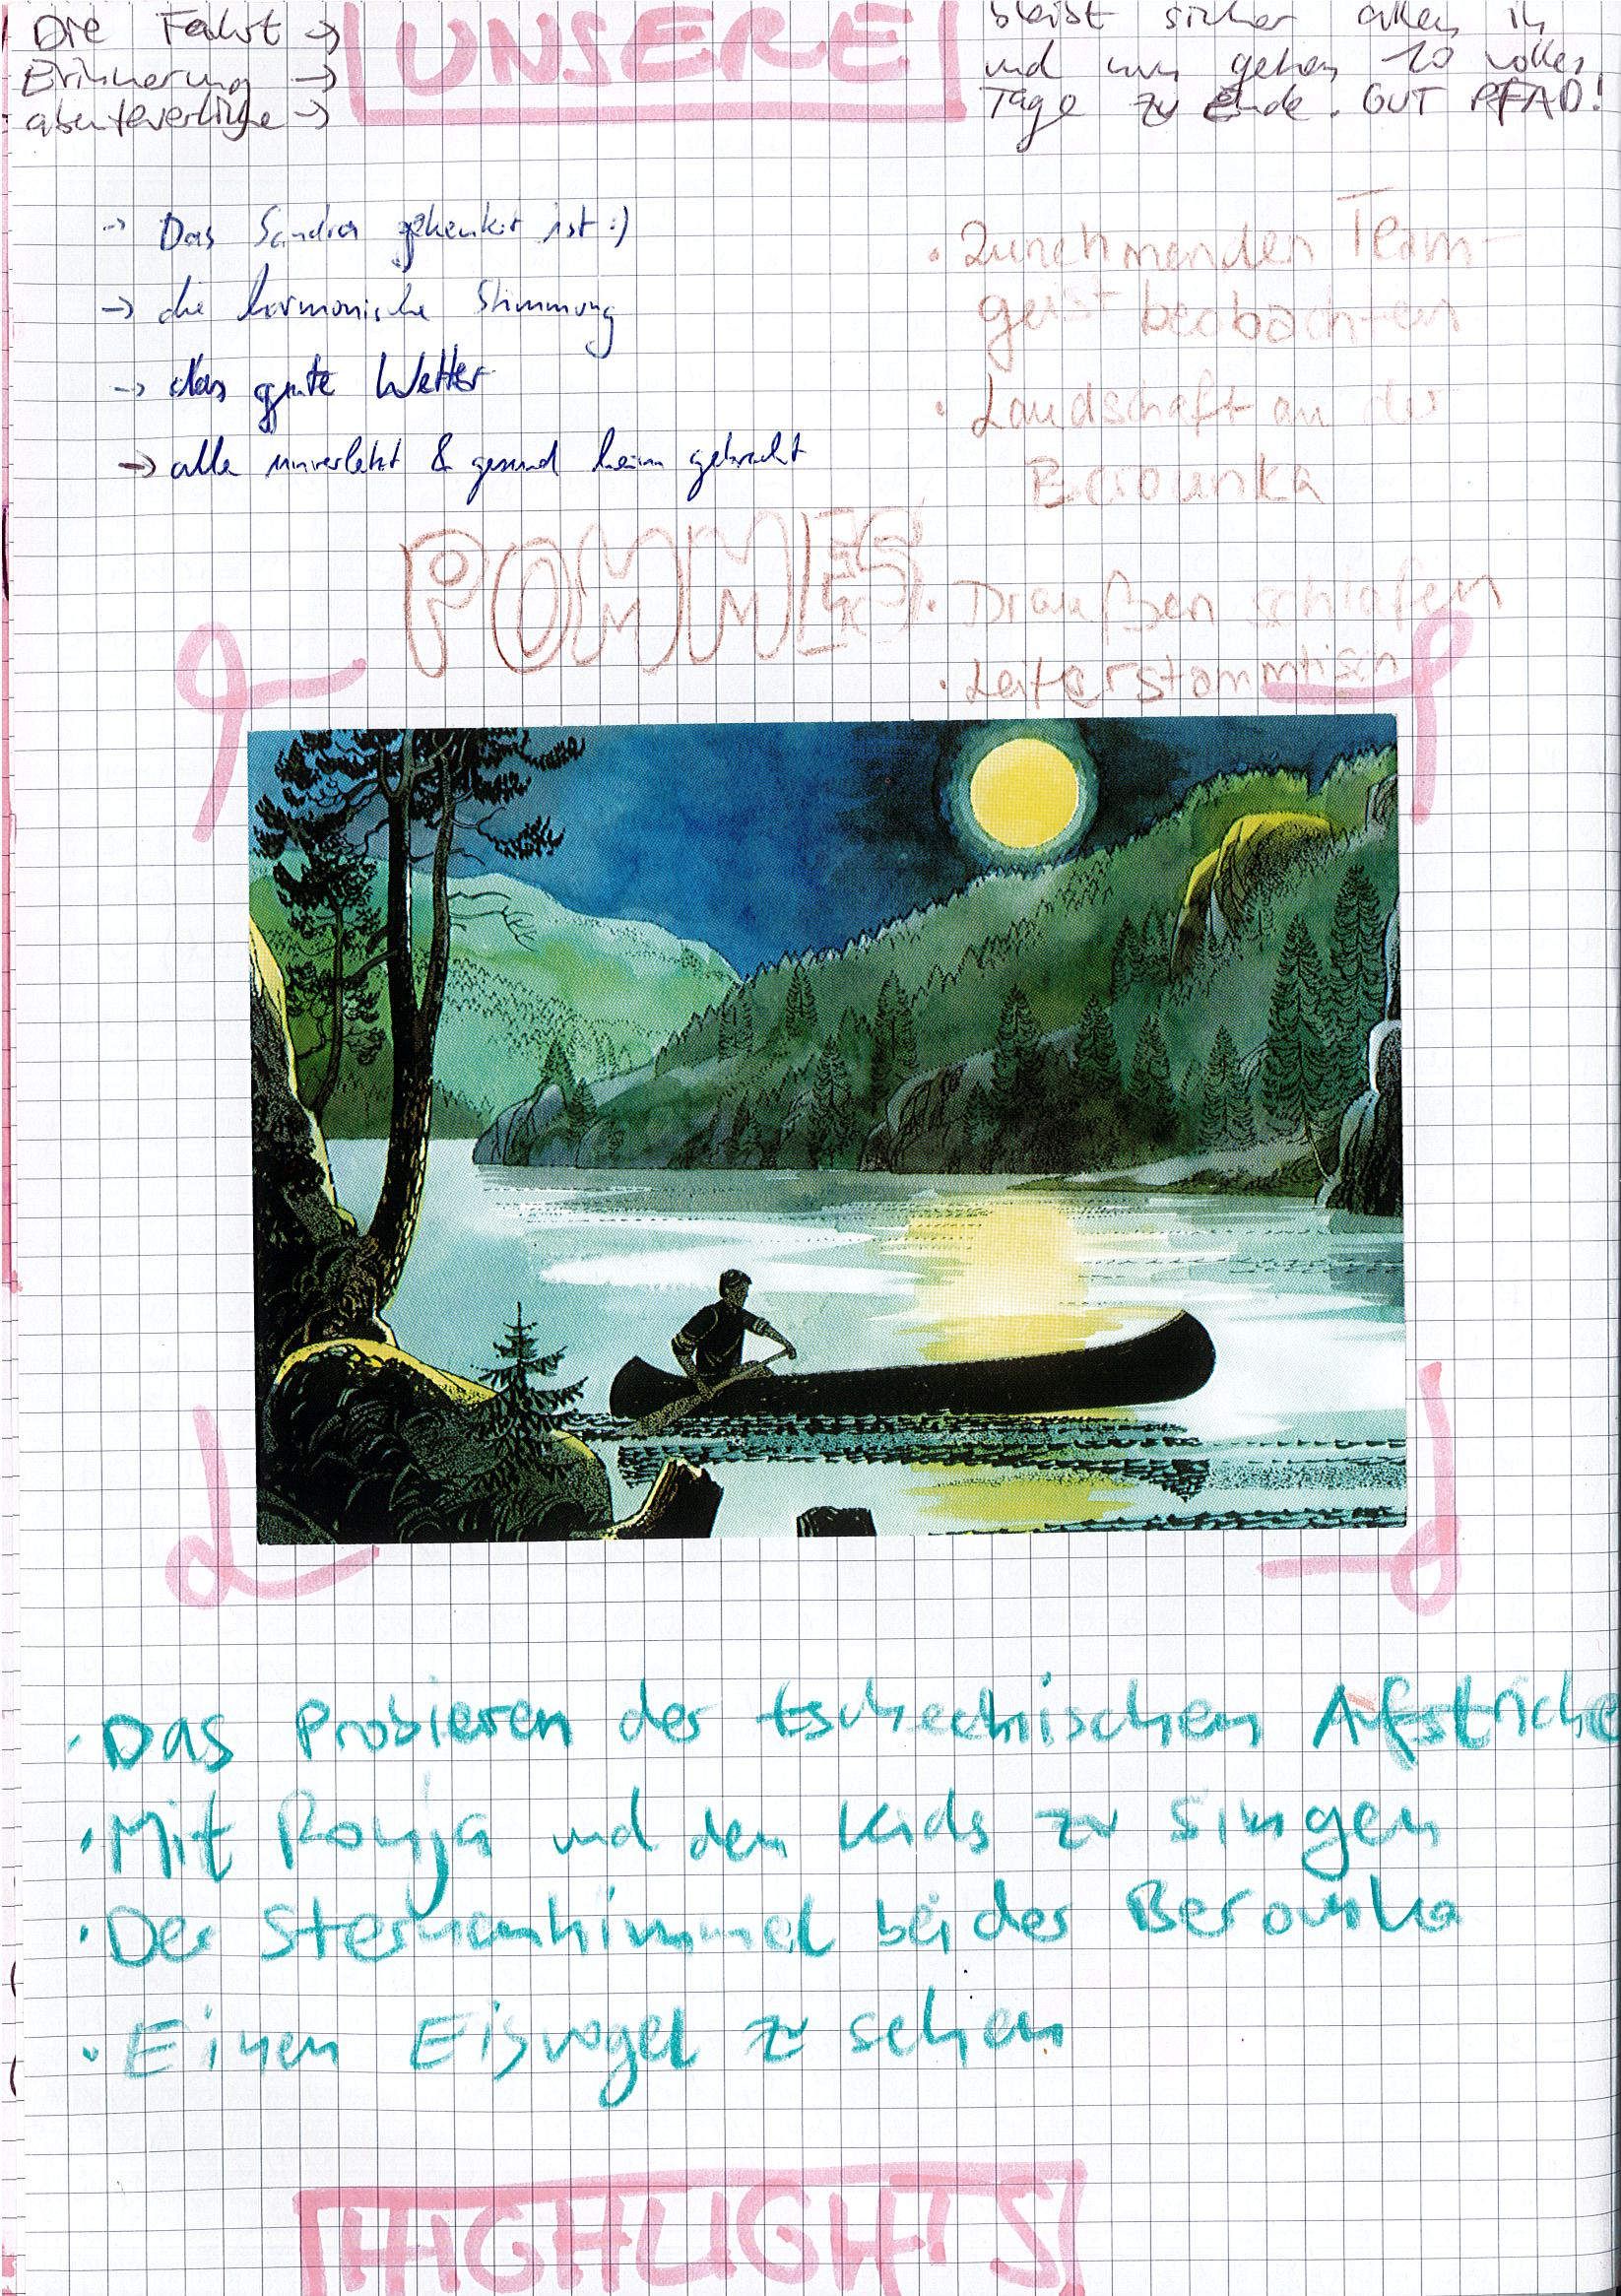 Die Fahrt →
Erinnerung →
abenteuerliche →
UNSERE
bleibt sicher allen in
und nun gehen 10 volle
Tage zu Ende. GUT PFAD!
→ Das Sandra gekenkert ist :)
→ die harmonische Stimmung
→ das gute Wetter
→ alle unverletzt & gesund heim gebracht
• Zunehmenden Team-
geist beobachten
• Landschaft an der
Berounka
• Draußen schlafen
• Leiterstammtisch
POMMES
• Das Probieren der tschechischen Aufstriche
• Mit Ronja und den Kids zu singen
• Der Sternenhimmel bei der Berounka
• Einen Eisvogel zu sehen
HIGHLIGHTS